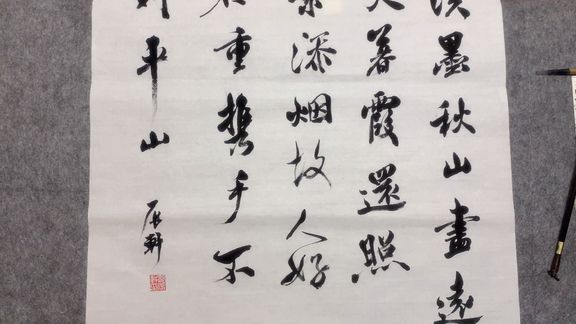 淡墨秋山畫遠
天暮霞還照
添烟故人好
在重携手不
到平山
軒